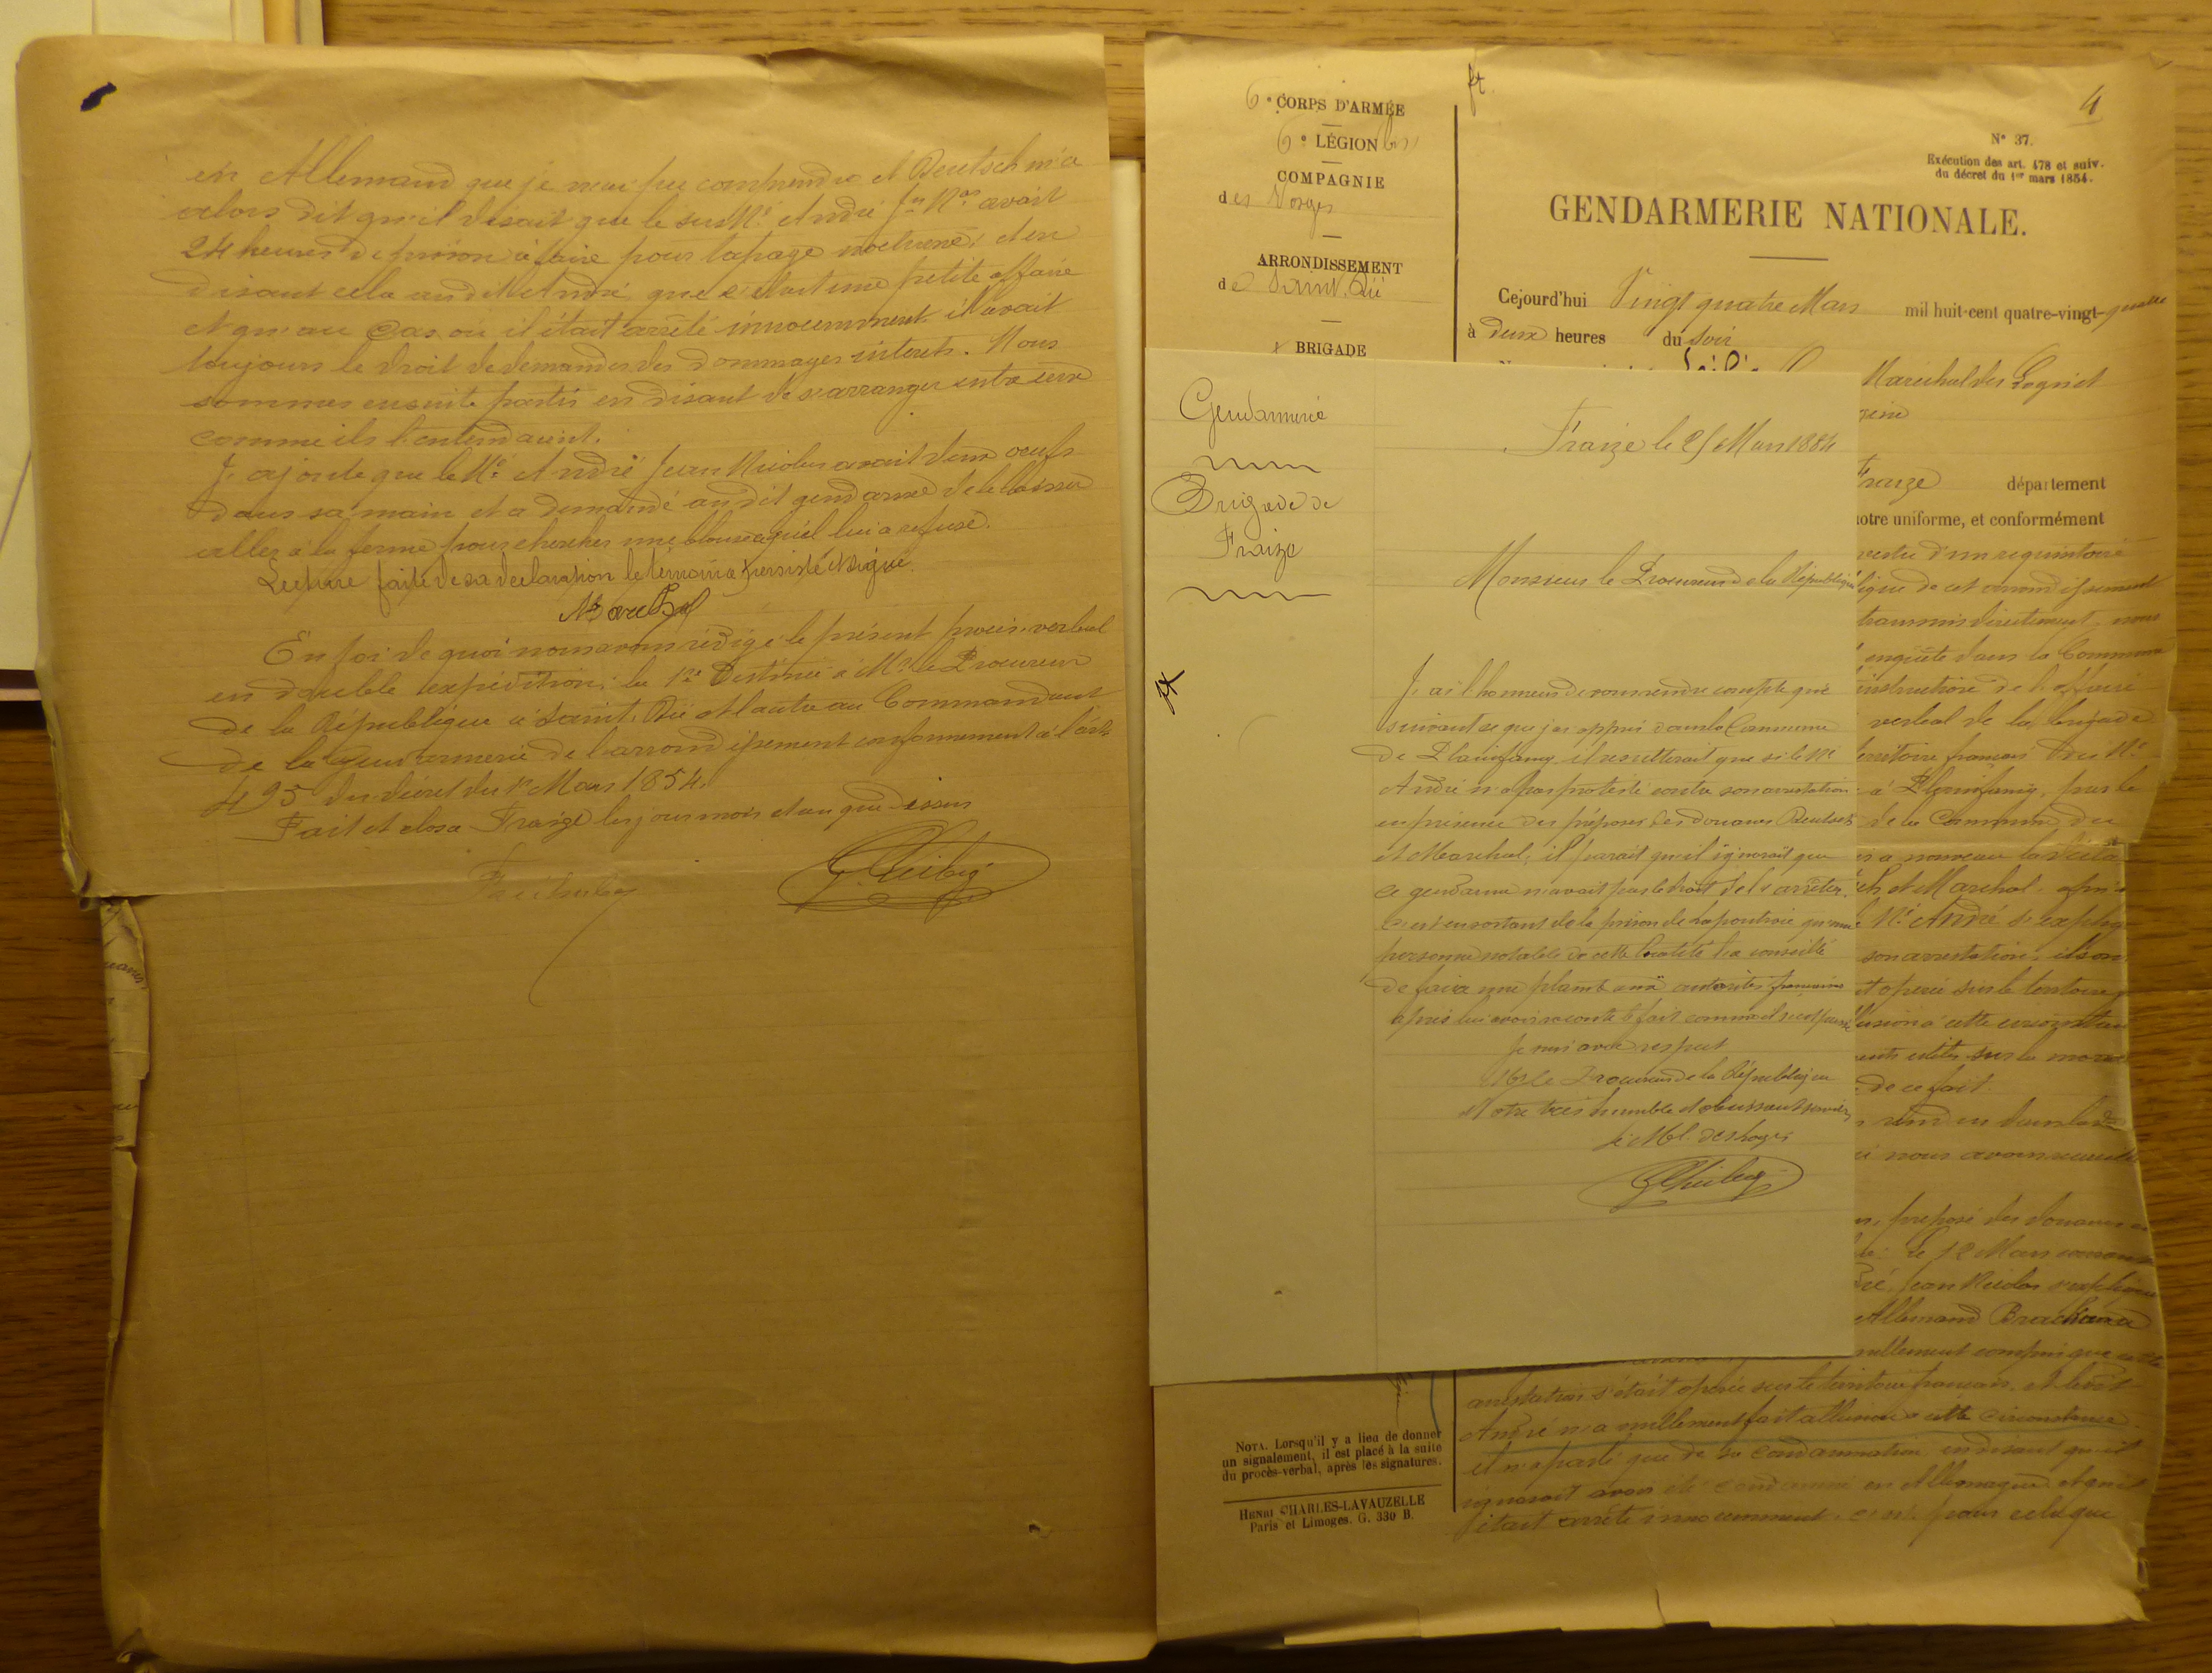 en Allemand que je n'ai pu comprendre et Deutsch m'a
alors dit qu'il disait que le sus Né André Jn Nas avait
24 heures de prison à faire pour tapage nocturne, et en
disant cela au dit André que c'était une petite affaire
et qu'au cas où il était arrêté innocemment il avait
toujours le droit de demander des dommages intérets. Nous
sommes ensuite partis en disant de s'arranger entre eux
comme ils l'entendaient.
J'ajoute que le Né André Jean Nicolas avait deux oeufs
dans sa main et a demandé au dit gendarme de le laisser
aller à la ferme pour chercher une blouse qu'il lui a refusé.
Lecture faite de sa declaration le témoin a persiste et signe.
Marchal
En foi de quoi nous avons rédigé le présent procès-verbal
en double expédition; la 1re destinée à Mr le Procureur
de la République à Saint-Dié et l'autre au Commandant
de la Gendarmerie de l'arrondissement conformément à l'art
495 du décret du 1er Mars 1854.
Fait et clos à Fraize les jour mois et an que dessus
6e CORPS D'ARMÉE
6e LÉGION bis
COMPAGNIE
des Vosges
ARRONDISSEMENT
de Saint Dié
BRIGADE
4
N° 37.
Exécution des art. 478 et suiv.
du décret du 1er mars 1854.
GENDARMERIE NATIONALE.
Cejourd'hui Vingt quatre Mars mil huit-cent quatre-vingt-quatre
à deux heures du soir
Marechal des Logis et
Fraize département
notre uniforme, et conformément
d'un requisitoire
de cet arrondissement
transmis directement, nous
enquête dans la Commune
instruction de l'affaire
verbal de la brigade
territoire français du Né
à Plainfaing, par le
de la Commune de
a nouveau la
et Marchal
Né André
son arrestation
opérée sur le territoire
à cette
utiles sur la
de ce fait.
nous avons
préposé des douanes
le 12 Mars
Jean Nicolas
Allemand
nullement compris que cette
arrestation s'était opérée sur le territoire français, et ledit
André n'a nullement fait allusion à cette circonstance
et n'a parlé que de sa condamnation en disant qu'il
ignorait avoir été condamné en Allemagne et qu'il
était arrêté innocemment, c'est pour cela que
Gendarmerie
Brigade de
Fraize
Fraize le 25 Mars 1884
Monsieur le Procureur de la République
J'ai l'honneur de vous rendre compte que
suivant ce que j'ai appris dans la Commune
de Plainfaing il resulterait que si le Né
André n'a pas protesté contre son arrestation
en présence des préposés des douanes Deutsch
et Marchal, il parait qu'il ignorait que
ce gendarme n'avait pas le droit de l'arrêter.
C'est en sortant de la prison de Lapoutroie qu'une
personne notable de cette localité l'a conseillé
de faire une plainte aux autorités françaises
après lui avoir raconté le fait comme il s'est passé
Je suis avec respect
Mr le Procureur de la République
Votre très humble et obeissant serviteur
Le Mal des logis
NOTA. Lorsqu'il y a lieu de donner
un signalement, il est placé à la suite
du procès-verbal, après les signatures.
HENRI CHARLES-LAVAUZELLE
Paris et Limoges. G. 330 B.